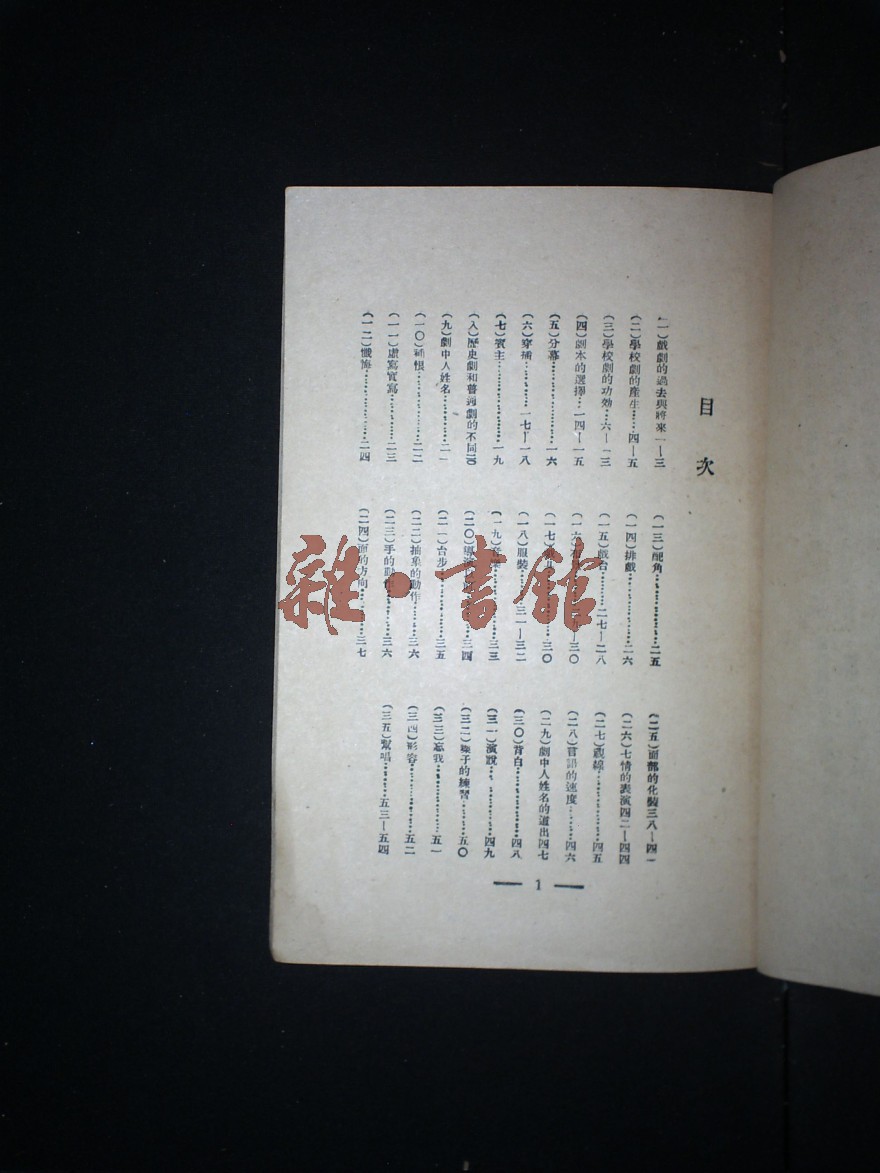 目次
(一)戲劇的過去與將來一—三
(二)學校劇的產生……四—五
(三)學校劇的功効…六—一三
(四)劇本的選擇…一四—一五
(五)分幕………………一六
(六)穿插………一七—一八
(七)賓主………………一九
(八)歷史劇和普通劇的不同二〇
(九)劇中人姓名………二一
(一〇)補恨……………二二
(一一)虛寫實寫………二三
(一二)懺悔……………二四
(一三)配角……………二五
(一四)排戲……………二六
(一五)戲台……二七—二八
(一六)
三〇
(一七)
三〇
(一八)服裝……三一—三二
(一九)
三三
(二〇)導演
三四
(二一)台步……………三五
(二二)抽象的動作……三六
(二三)手的動作………三六
(二四)面的方向………三七
(二五)面部的化裝三八—四一
(二六)七情的表演四二—四四
(二七)視線……………四五
(二八)言語的速度……四六
(二九)劇中人姓名的道出四七
(三〇)背白……………四八
(三一)演說……………四九
(三二)嗓子的練習……五〇
(三三)忘我……………五一
(三四)形容……………五二
(三五)幫唱……五三—五四
— 1 —
雜·書館